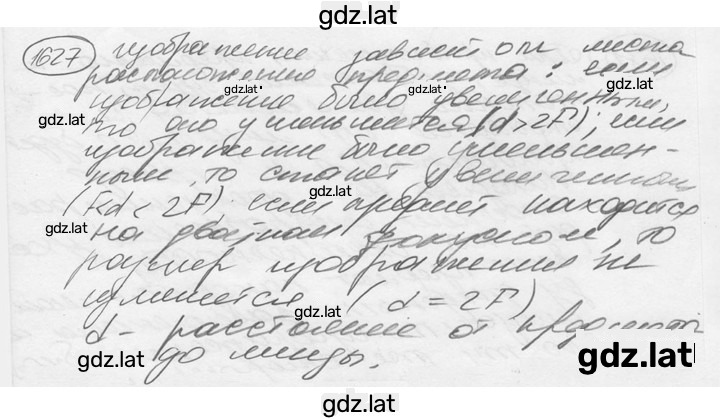 gdz.lat
1627 изображение зависит от места
расположения предмета: если
gdz.lat gdz.lat
изображение было увеличенным,
gdz.lat gdz.lat
то оно уменьшается (d>2F); если
изображение было уменьшен-
ным, то станет увеличенным
gdz.lat
(F<d<2F) если предмет находится
gdz.lat gdz.lat
на двойном фокусном, то
размер изображения не
изменется (d=2F)
gdz.lat
d- расстояние от предмета
gdz.lat gdz.lat
до линзы.
gdz.lat